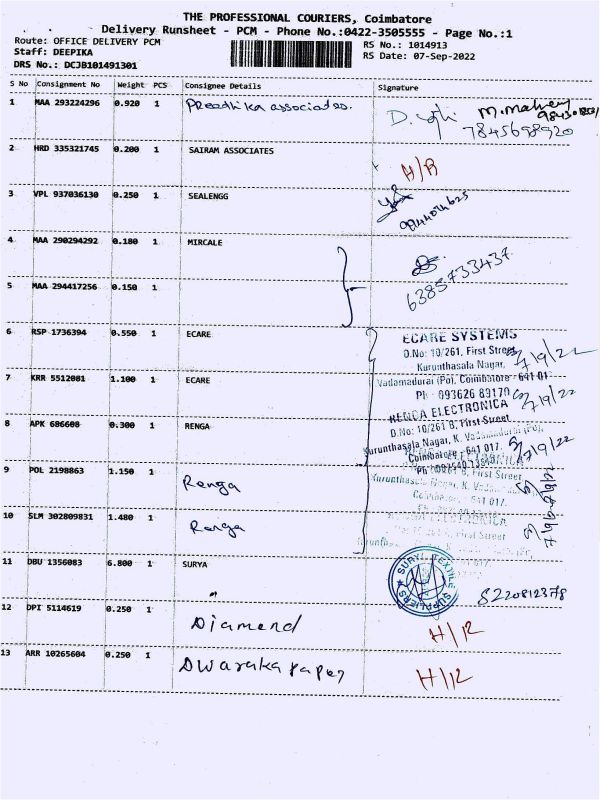 THE PROFESSIONAL COURIERS, Coimbatore
Delivery Runsheet - PCM - Phone No.:0422-3505555 - Page No.:1
Route: OFFICE DELIVERY PCM
RS No.: 1014913
Staff: DEEPIKA
RS Date: 07-Sep-2022
DRS No.: DCJB101491301
S No Consignment No Weight PCS Consignee Details Signature
1 MAA 293224296 0.920 1 Preethika associates.
7845698920
2 HRD 335321745 0.200 1 SAIRAM ASSOCIATES
H/R
3 VPL 937036130 0.250 1 SEALENGG
4 MAA 290294292 0.180 1 MIRCALE
6385733437
5 MAA 294417256 0.150 1
6 RSP 1736394 0.550 1 ECARE
ECARE SYSTEMS
D.No: 10/261, First Street,
Kurunthasala Nagar,
Vadamadurai (Po), Coimbatore - 641 01
Ph : 093626 89170
7/9/22
7 KRR 5512081 1.100 1 ECARE
7/9/22
8 APK 686608 0.300 1 RENGA
RENGA ELECTRONICA
D.No: 10/261 B, First Street
Kurunthasala Nagar, K. Vadamadurai (Po),
Coimbatore - 641 017.
7/9/22
9 POL 2198863 1.150 1 Renga
10 SLM 302809831 1.480 1 Renga
11 DBU 1356083 6.800 1 SURYA
SURYA TEXTILE SUPPLIERS
12 DPI 5114619 0.250 1 Diamend
H/R
13 ARR 10265604 0.250 1 Dwaraka paper
H/R